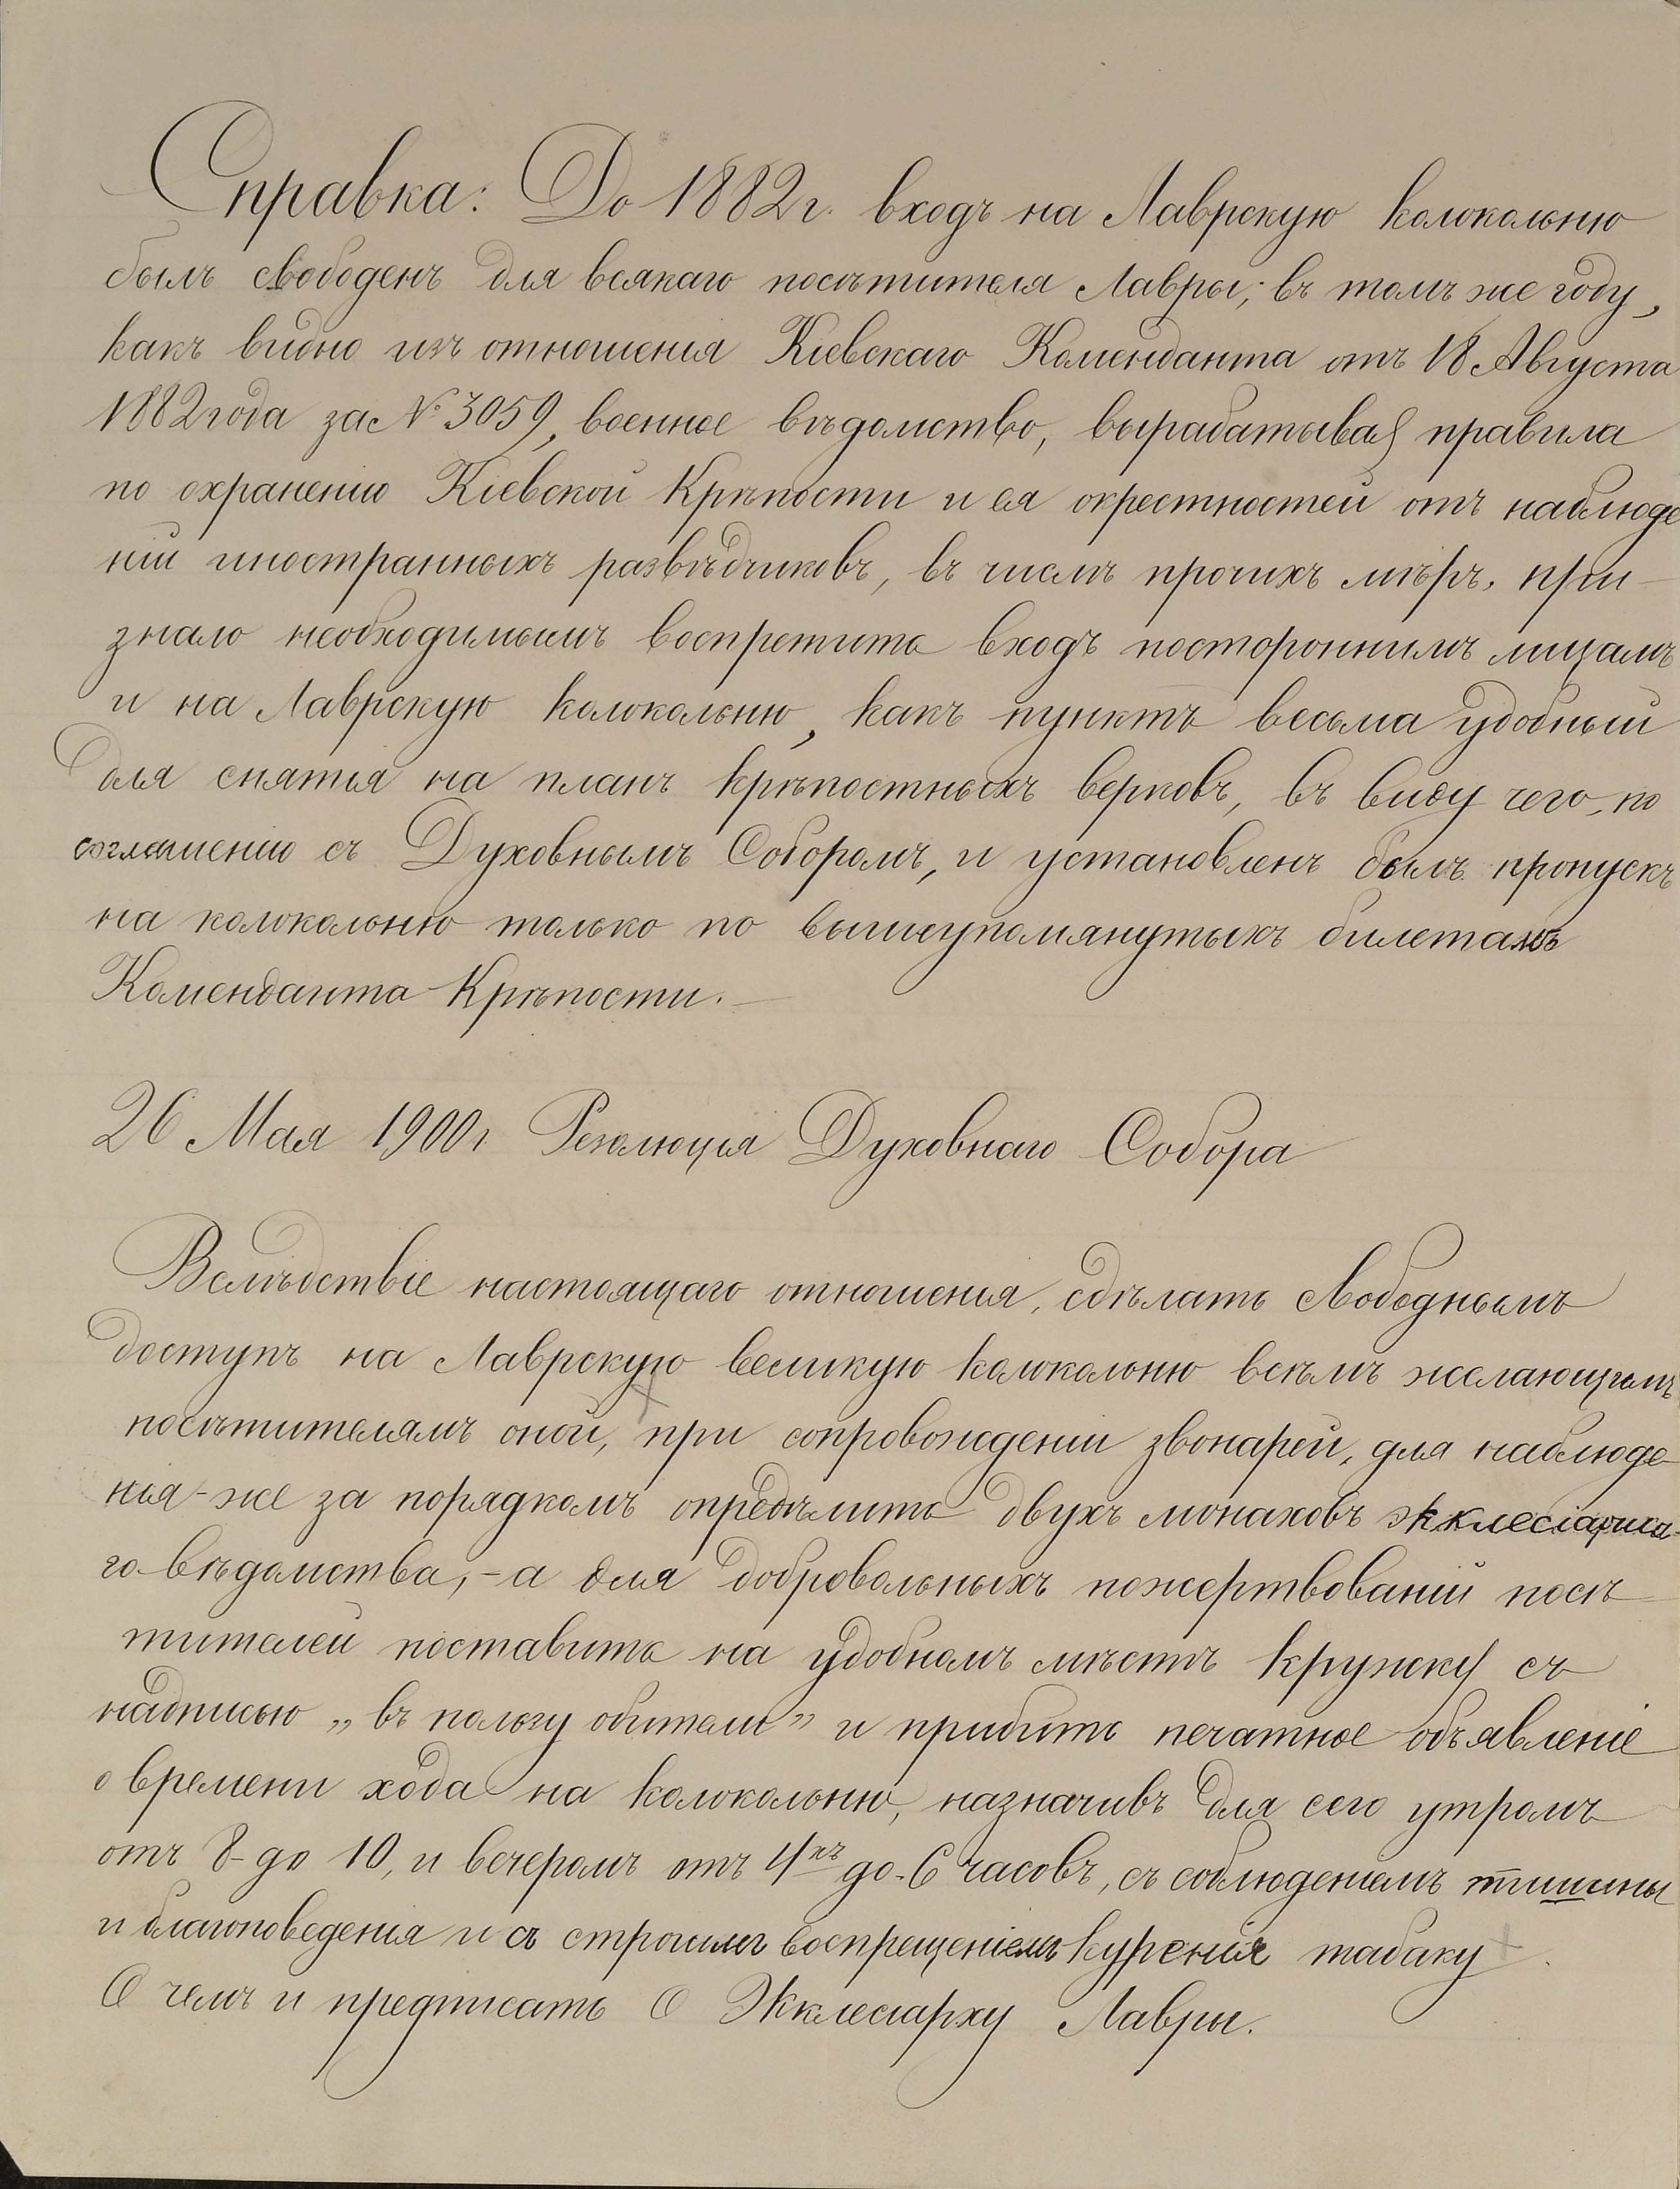 Справка: До 1882 г. входъ на Лаврскую колокольню
былъ свободенъ для всякаго посѣтителя Лавры; въ томъ же году,
какъ видно изъ отношенія Кіевскаго Коменданта отъ 18 Августа
1882 года за № 3059, военное вѣдомство, вырабатывая правила
по охраненію Кіевской Крѣпости и ея окрестностей отъ наблюде
ній иностранныхъ развѣдчиковъ, въ числѣ прочихъ мѣръ, при-
знало необходимымъ воспретить входъ постороннимъ лицамъ
и на Лаврскую колокольню, какъ пунктъ весьма удобный
для снятія на планъ крѣпостныхъ верковъ, въ виду чего, по
соглашенію съ Духовнымъ Соборомъ, и установленъ былъ пропускъ
на колокольню только по вышеупомянутымъ билетамъ
Коменданта Крѣпости.
26 Мая 1900 г Резолюція Духовнаго Собора
Вслѣдствіе настоящаго отношенія, сдѣлать свободнымъ
доступъ на Лаврскую великую колокольню всѣмъ желающимъ
посѣтителямъ оной, при сопровожденіи звонарей, для наблюде-
нія-же за порядкомъ опредѣлить двухъ монаховъ экклесіарша-
го вѣдомства, - а для добровольныхъ пожертвованій посѣ-
тителей поставить на удобномъ мѣстѣ кружку съ
надписью „въ пользу обители” и прибить печатное объявленіе
о времени хода на колокольню, назначивъ для сего утромъ
отъ 8 до 10, и вечеромъ отъ 4хъ до 6 часовъ, съ соблюденіемъ тишины
и благоповеденія и съ строгимъ воспрещеніемъ куренія табаку.
О чемъ и предписать О Экклесіарху Лавры.